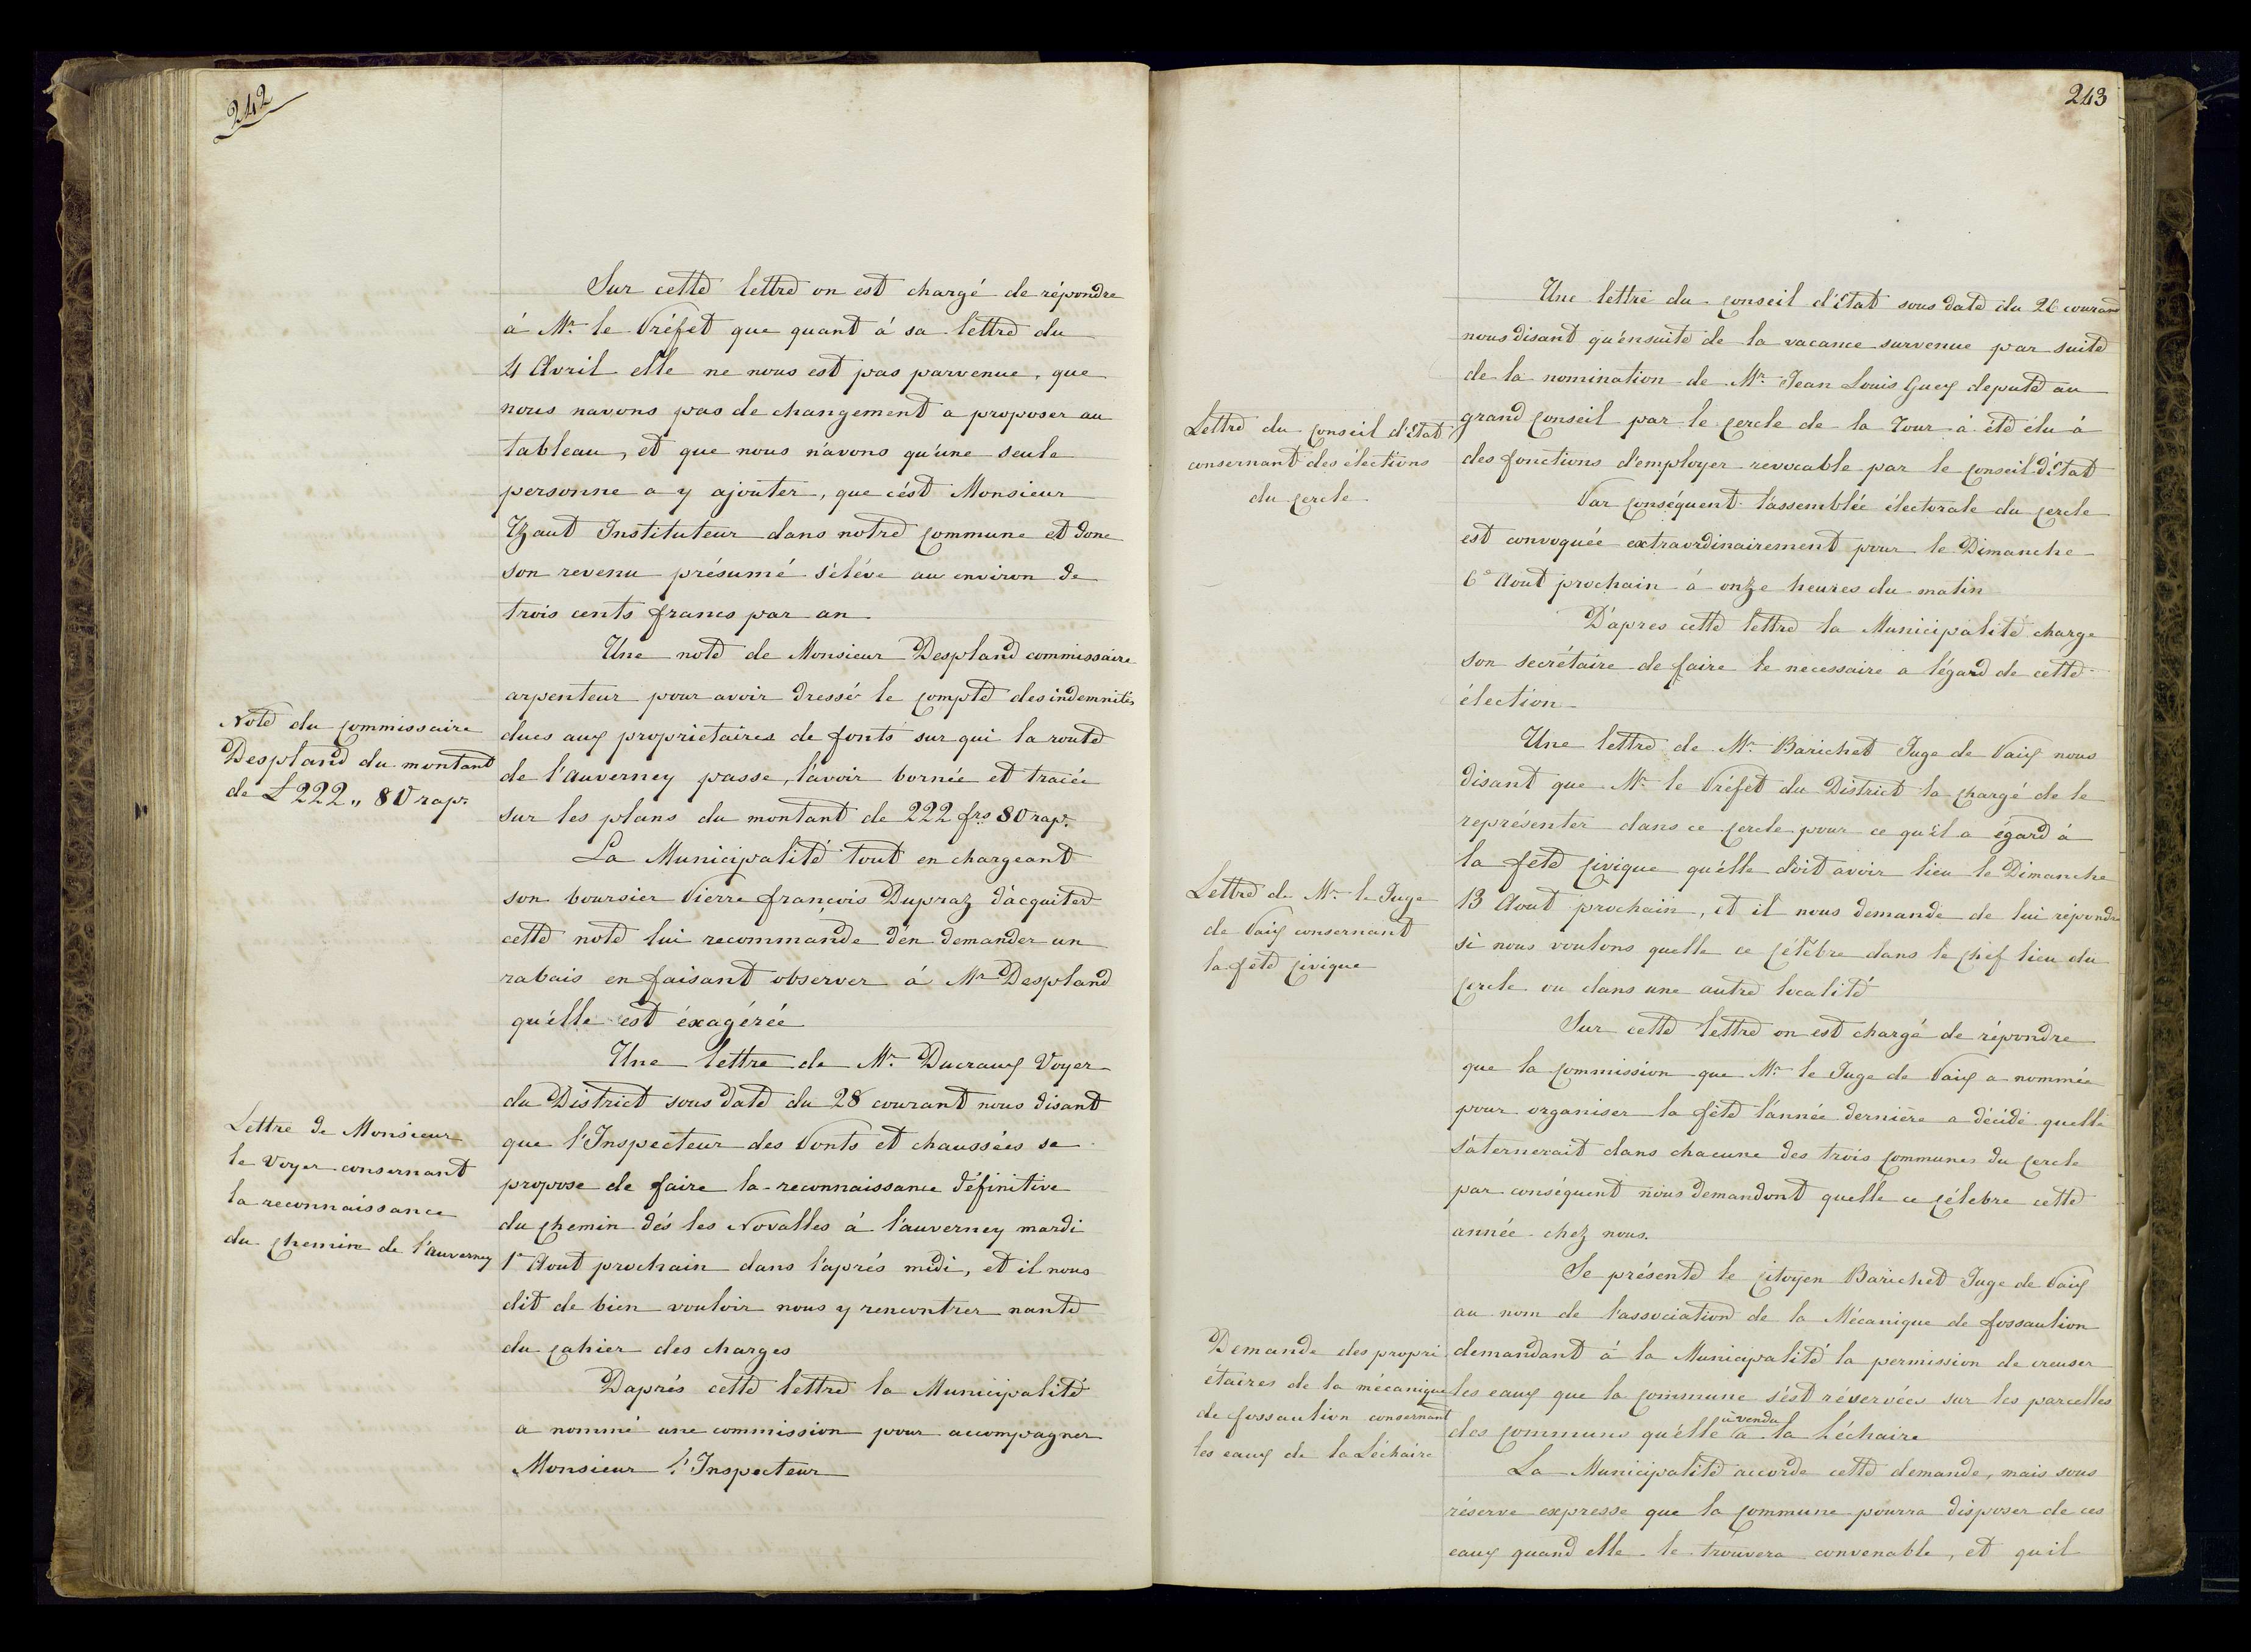 242
Sur cette lettre on est chargé de répondre
à Mr. le Préfet que quant à sa lettre du
4 Avril elle ne nous est pas parvenue, que
nous navons pas de changement a proposer au
tableau, et que nous n'avons qu'une seule
personne a y ajouter, que c'est Monsieur
Instituteur dans notre commune et donc
son revenu présumé s'élève au environ de
trois cents francs par an
Une note de Monsieur Despland commissaire
arpenteur pour avoir dressé le compte des indemnités
dues aux propriétaires de fonts sur qui la route
de l'Auverney passe, l'avoir bornée et tracée
sur les plans du montant de 222 frs 80 rap.
La Municipalité tout en chargeant
son boursier Pierre françois Dupraz d'acquiter
cette note lui recommande d'en demander un
rabais en faisant observer à Mr Despland
qu'elle est éxagérée
Une lettre de Mr. Ducraux Voyer
du District sous date du 28 courant nous disant
que l'Inspecteur des Ponts et chaussées se
propose de faire la reconnaissance définitive
du chemin dés les Novalles à l'auverney mardi
1er Aout prochain dans l'aprés midi, et il nous
dit de bien vouloir nous y rencontrer nante
du cahier des charges
Daprés cette lettre la Municipalité
a nommé une commission pour accompagner
Monsieur l'Inspecteur
Note du commissaire
Despland du montant
de £ 222 ,, 80 rap.
Lettre de Monsieur
le Voyer consernant
la reconnaissance
du chemin de l'auverney
243
Une lettre du conseil d'Etat sous date du 26 courant
nous disant qu'ensuite de la vacance survenue par suite
de la nomination de Mr. Jean Louis Guex depute au
grand conseil par le cercle de la Tour à été élu à
des fonctions d'employer revocable par le conseil d'Etat
Par conséquent l'assemblée électorale du cercle
est convoquée extraordinairement pour le Dimanche
6e Aout prochain à onze heures du matin
D'apres cette lettre la Municipalité charge
son secrétaire de faire le necessaire a légard de cette
élection
Une lettre de Mr. Barichet Juge de Paix nous
disant que Mr. le Préfet du District la chargé de le
représenter dans ce cercle pour ce qu'il a égard à
la fête civique qu'elle doit avoir lieu le Dimanche
13 Aout prochain, et il nous demande de lui répondre
si nous voulons quelle ce célèbre dans le chef lieu du
cercle ou dans une autre localité
Sur cette lettre on est chargé de répondre
que la commission que Mr. le Juge de Paix a nommée
pour organiser la fête l'année dernière a décidé quelle
s'aternerait dans chacune des trois communes du cercle
par conséquent nous demandont quelle ce célebre cette
année chez nous.
Se présente le citoyen Barichet Juge de Paix
au nom de l'association de la Mécanique de fossaulion
demandant à la Municipalité la permission de creuser
les eaux que la commune s'est réservées sur les parcelles
des communs qu'elle à vendu à la Léchaire
La Municipalité accorde cette demande, mais sous
réserve expresse que la commune pourra disposer de ces
eaux quand elle le trouvera convenable, et quil
Lettre du conseil d'Etat
consernant des élections
du cercle
Lettre de Mr. le Juge
de Paix consernant
la fête civique
Demande des propri
étaires de la mécanique
de fossaulion consernant
les eaux de la Léchaire